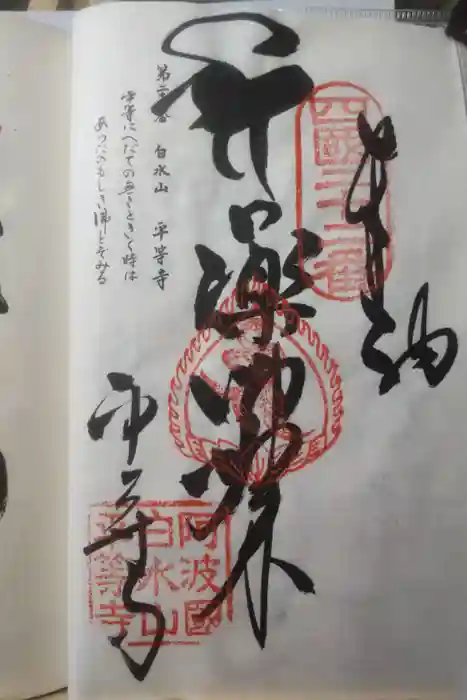 奉納
四國二十二番
薬師如来
平等寺
阿波國
白水山
平等寺
白水山 平等寺
平等にへだての無きときく時は
あらたのもしき佛とぞみる